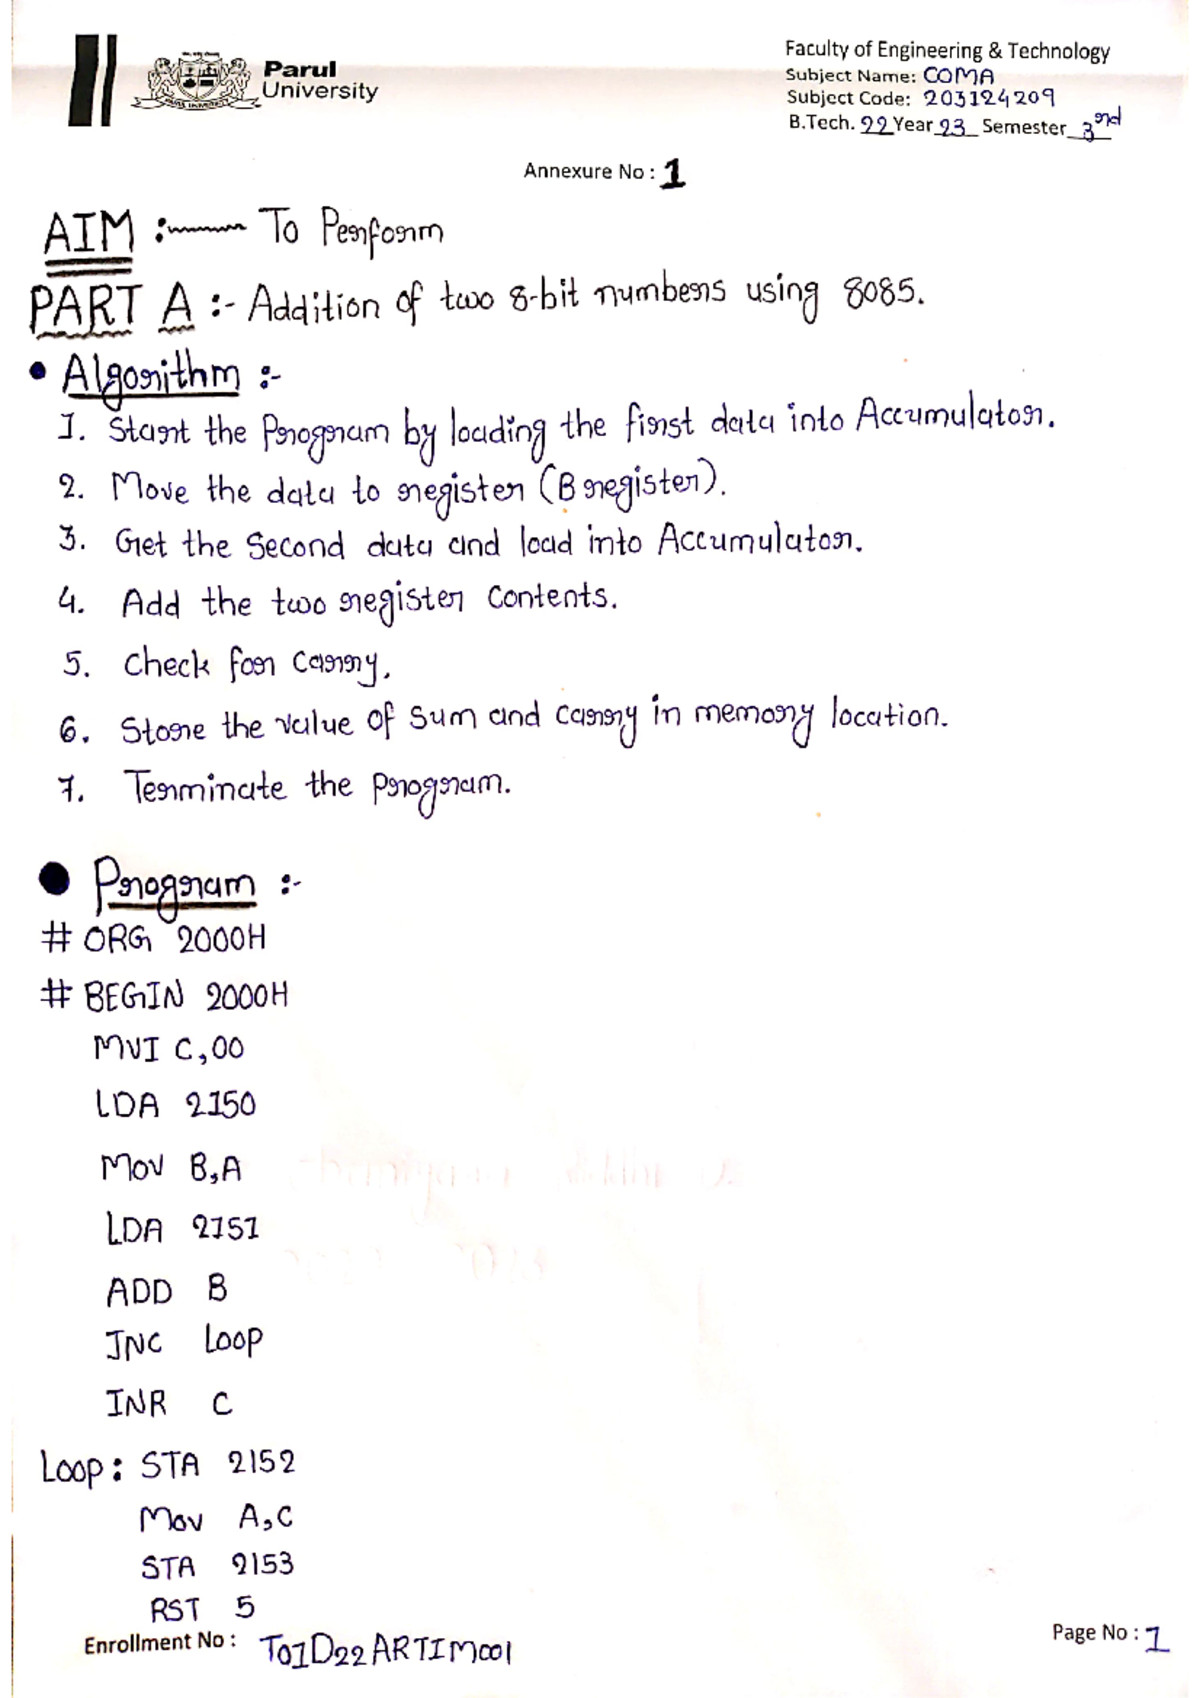 Parul
University
Faculty of Engineering & Technology
Subject Name: COMA
Subject Code: 203124209
B.Tech. 22 Year 23 Semester 3nd
Annexure No : 1
AIM :- To Perform
PART A :- Addition of two 8-bit numbers using 8085.
• Algorithm :-
1. Start the Program by loading the first data into Accumulator.
2. Move the data to register (B register).
3. Get the Second data and load into Accumulator.
4. Add the two register Contents.
5. Check for Carry.
6. Store the value of Sum and Carry in memory location.
7. Terminate the Program.
• Program :-
# ORG 2000H
# BEGIN 2000H
MVI C,00
LDA 2150
MOV B,A
LDA 2151
ADD B
JNC Loop
INR C
Loop: STA 2152
Mov A,C
STA 2153
RST 5
Enrollment No : T01D22ARTIM001
Page No : 1